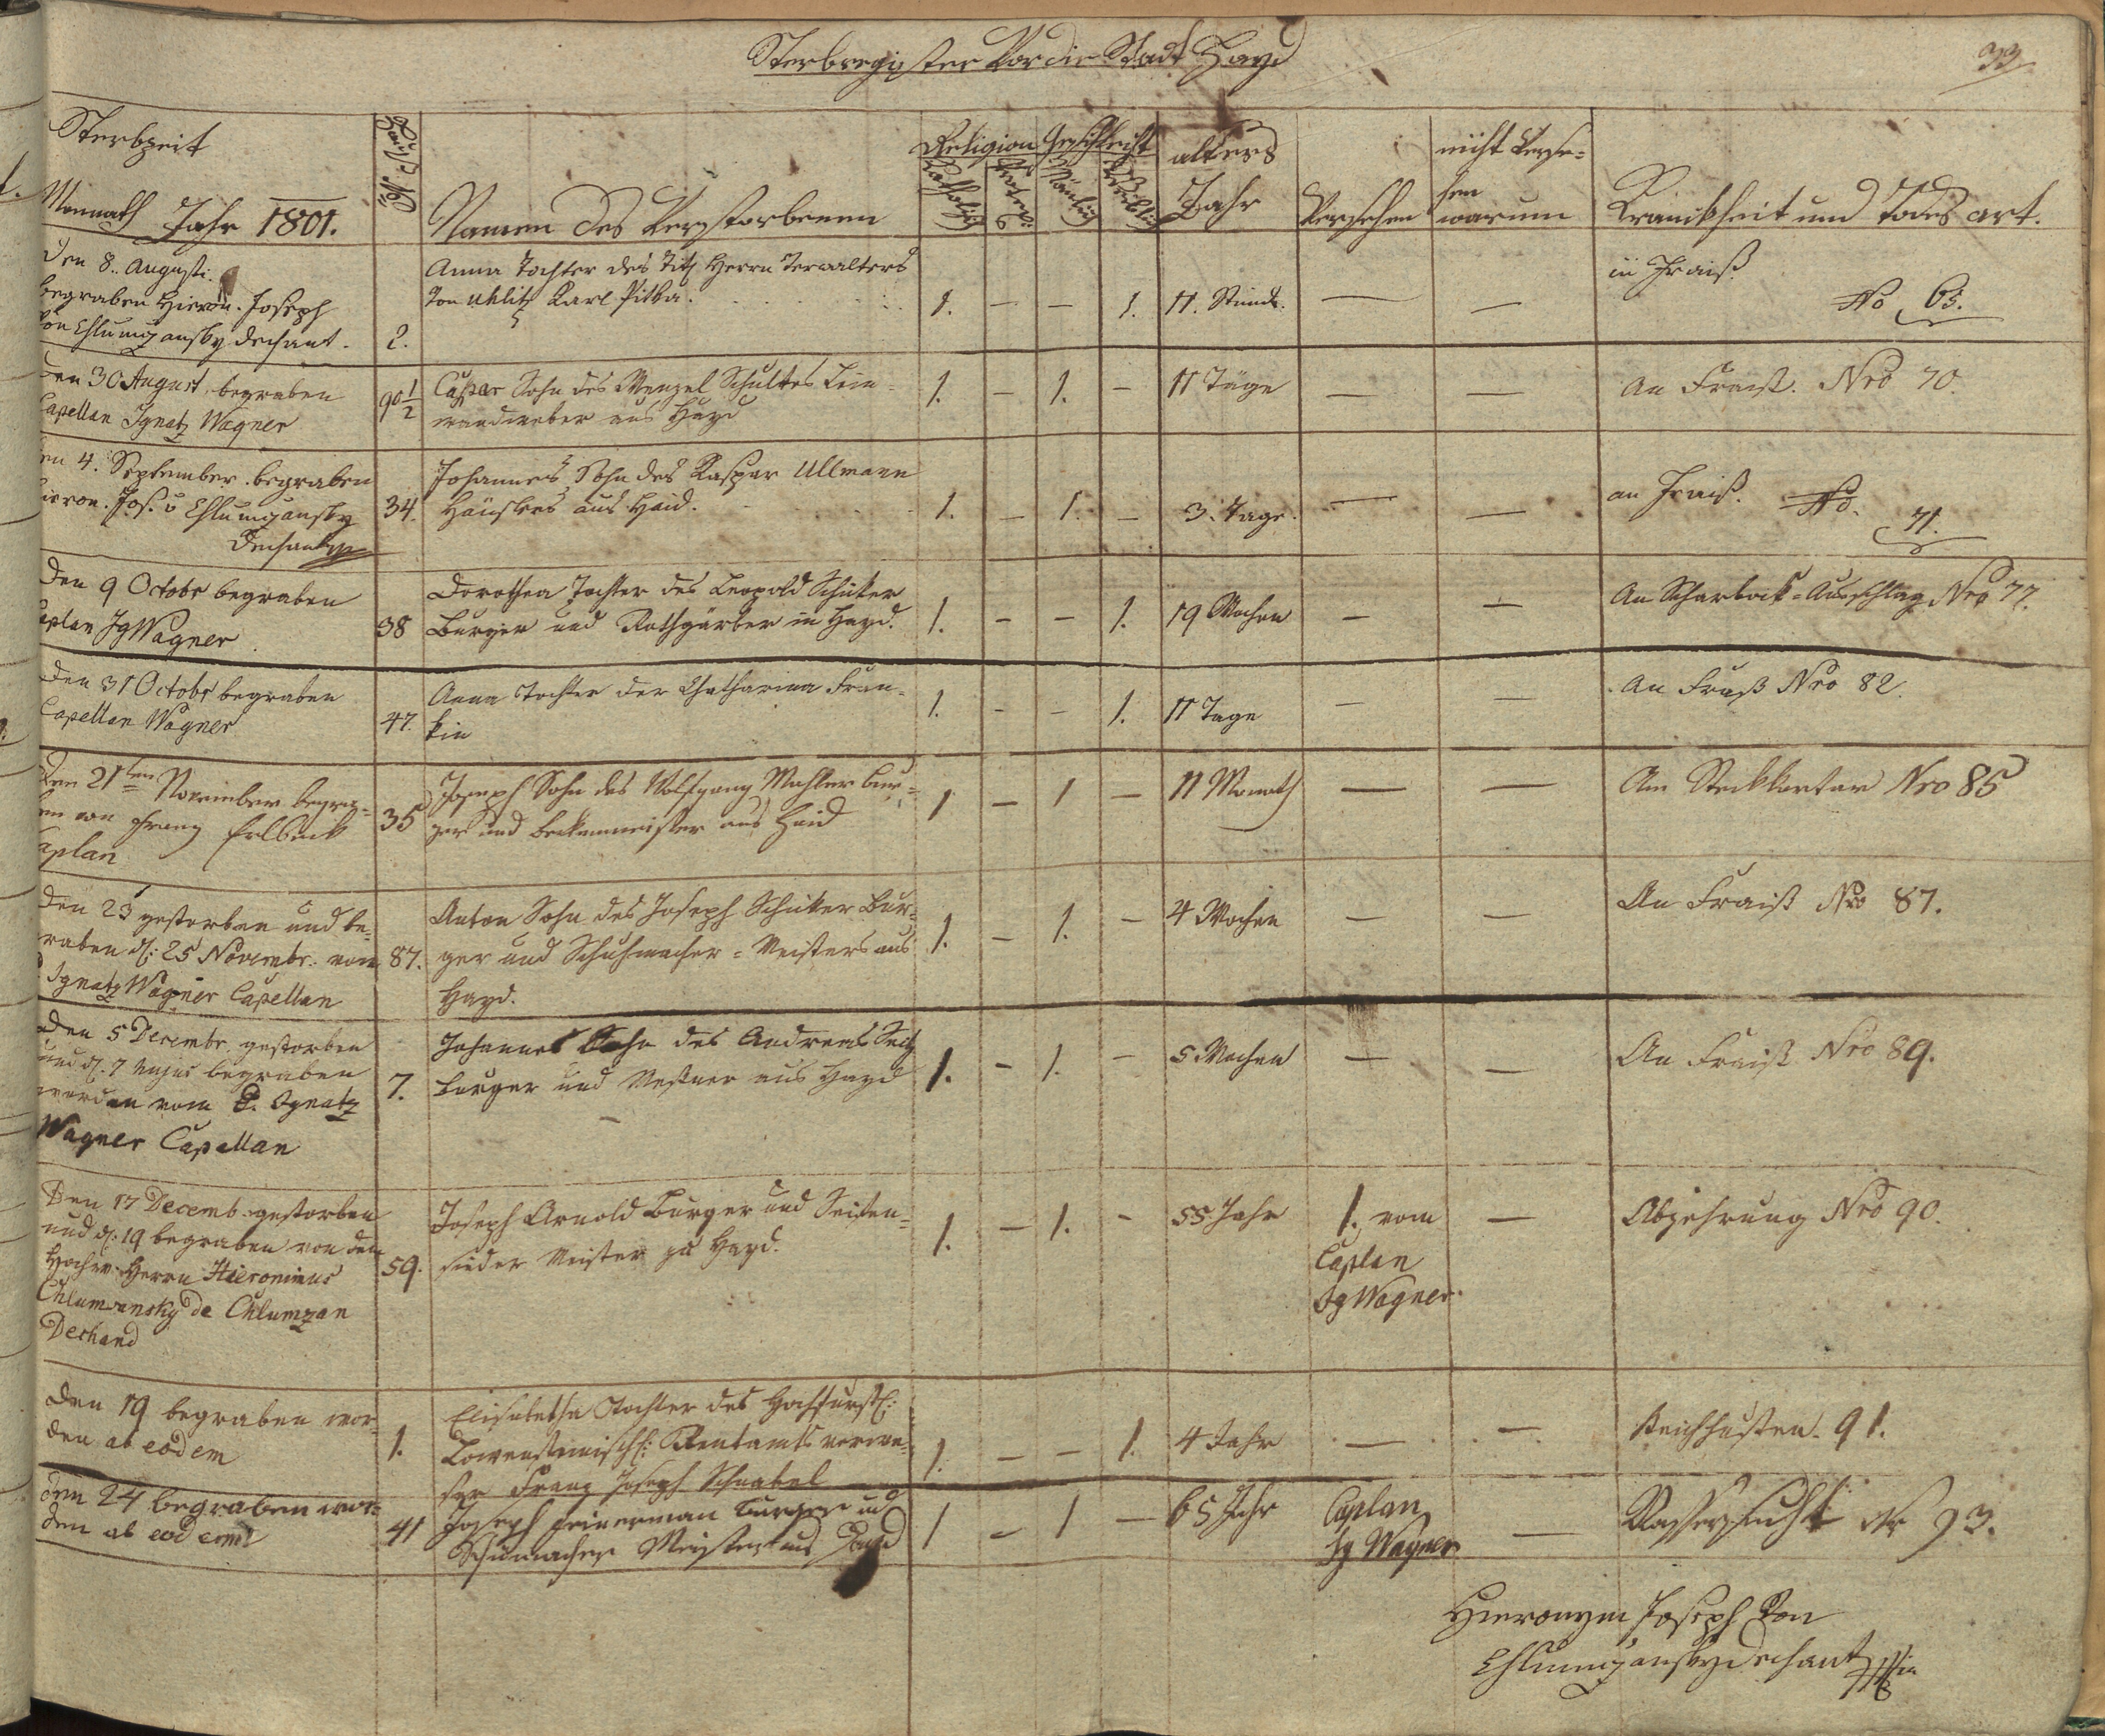 Sterbregister Vor die Stadt Hayd
33
Sterbzeit
Monnath Jahr 1801.
N Haus
Namen des Verstorbenen
Religion
Katholisch
Geschlecht
Mänlich
Weiblich
alters
Jahr
Versehen
nicht Verse=
hen
warum
Krankheit und Todes art.
den 8. Augusti.
begraben Hieron. Joseph
von Chlumzansky dechant.
2.
Anna Tochter des Titl Herrn Verwalters
Von Uhlitz Karl Pitka.
1. — — 1.
11. Stund.
— —
in Fraiß
No 63.
den 30 August begraben
Capellan Ignatz Wagner
90 1/2
Caspar Sohn des Wenzel Schultes Lein=
wandweber aus Hayd
1. — 1. —
11 Täge
— —
An Fraiß. Nro 70.
en 4. September. begraben
ieron. Jos. v Chlumzansky
Dechant
34.
Johannes Sohn des Kaspar Ullmann
Häuslers aus Haid.
1. — 1. —
3. Tage.
— —
an Fraiß. No. 71.
den 9 Octobr begraben
aplan Ig Wagner
38
Dorothea Tochter des Leopold Schüker
Burger und Rothgärber in Hayd.
1. — — 1.
19 Wochen
— —
An Scharbock=Ausschlag Nro 77.
den 31 Octobr begraben
Capellan Wagner
47.
Anna Tochter der Chatharina Fran=
kin
1. — — 1.
11 Tage
— —
An Fraiß Nro 82.
den 21ten November begra=
en von Franz Erlbeck
aplan
35
Joseph Sohn des Wolfgang Mahler bur=
ger und beckenmeister aus Haid
1 — 1 —
11 Monath
— —
Am Steckkartar Nro 85
den 23 gestorben und be=
raben d: 25 Novembr. von
Ignatz Wagner Capellan
87.
Anton Sohn des Joseph Schüker Bur=
ger und Schuhmacher=Meisters aus
Hayd.
1. — 1. —
4 Wochen
— —
An Fraiß Nro 87.
den 5 Decembr. gestorben
und d. 7 hujus begraben
worden vom P. Ignatz
Wagner Capellan
7.
Johannes Sohn des Andreas Seitz
burger und Meßner aus Hayd
1. — 1. —
5 Wochen
— —
An Fraiß Nro 89.
Den 17 Decemb. gestorben
und d: 19 begraben von den
Hochw. Herrn Hieronimus
Chlumzansky de Chlumzan
Dechand
59.
Joseph Arnold Burger und Seifen=
sieder Meister zu Hayd.
1. — 1. —
55 Jahr
1. vom
Caplan
Ig Wagner.
—
Abzehrung Nro 90.
den 19 begraben wor
den ab eodem
1.
Elisabetha Tochter des Hochfurstl:
Lowensteinischl: Rentamts verwe=
ser Franz Joseph Schnabel
1. — — 1.
4 Jahr
— —
Keichhusten. 91.
den 24 begraben wor=
den ab eodem
41
Joseph Feinerman Burger ud
Schumacher Meister aus Hayd
1 — 1 —
65 Jahr
Caplan
Ig Wagner
—
Wassersucht Nr 93.
Hieronym Joseph Von
Chlumzansky dechant